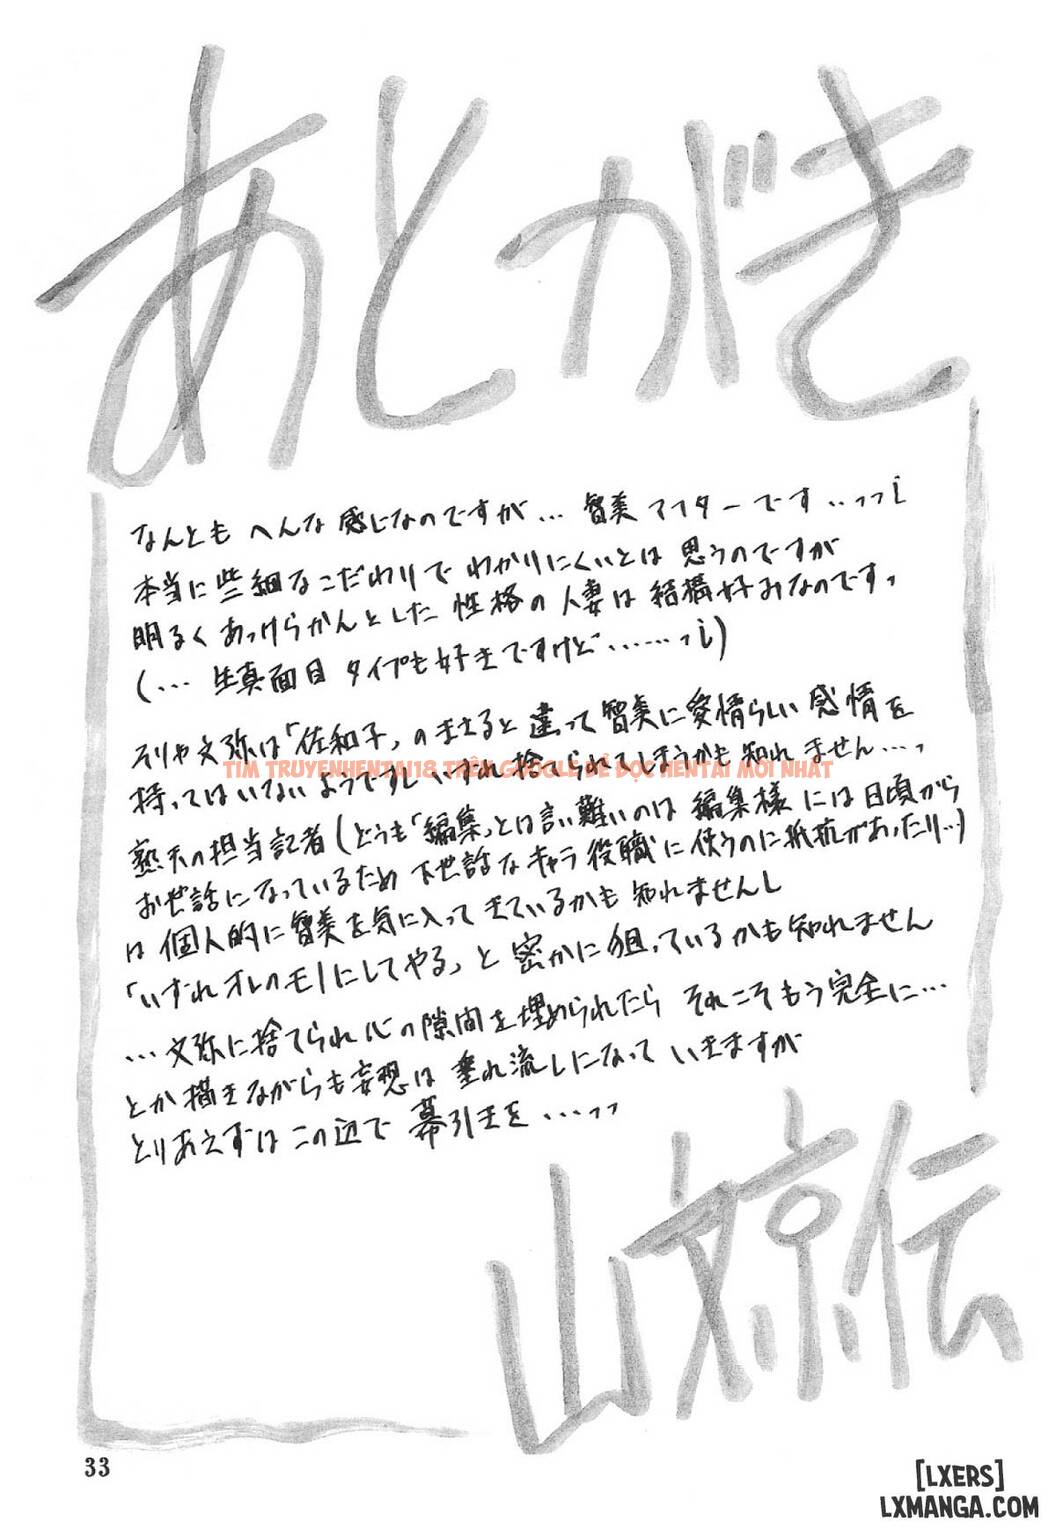 あとがき
なんとも へんな 感じなのですが… 智美アフターです…っっ;
本当に些細なこだわりで わかりにくいとは 思うのですが
明るく あっけらかんとした 性格の人妻は 結構好みなのです、
(… 生真面目 タイプも好きですけど………っ;)
そりゃ文弥は「佐和子」のまさると違って智美に愛情らしい感情を
持ってはいないようですし いずれ捨てられてしまうかも知れません…、
TÌM TRUYENHENTAI18 TRÊN GOOGLE ĐỂ ĐỌC HENTAI MỚI NHẤT
熟天の担当記者(どうも「編集」とは言い難いのは 編集様には日頃から
お世話になっているため 下世話なキャラ役職に使うのに抵抗があったり…)
は 個人的に智美を気に入ってきているかも知れませんし
「いずれオレのモノにしてやる」と 密かに狙っているかも知れません
… 文弥に捨てられ心の隙間を埋められたら それこそもう完全に…
とか描きながらも妄想は 垂れ流しになって いきますが
とりあえずは この辺で 幕引きを …っっ
山文京伝
33
[LXERS]
LXMANGA.COM